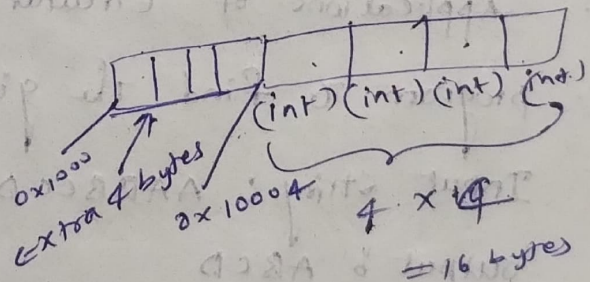 (int) (int) (int) (int)
0x1000
Extra 4 bytes
0x10004
4 x 4
= 16 bytes